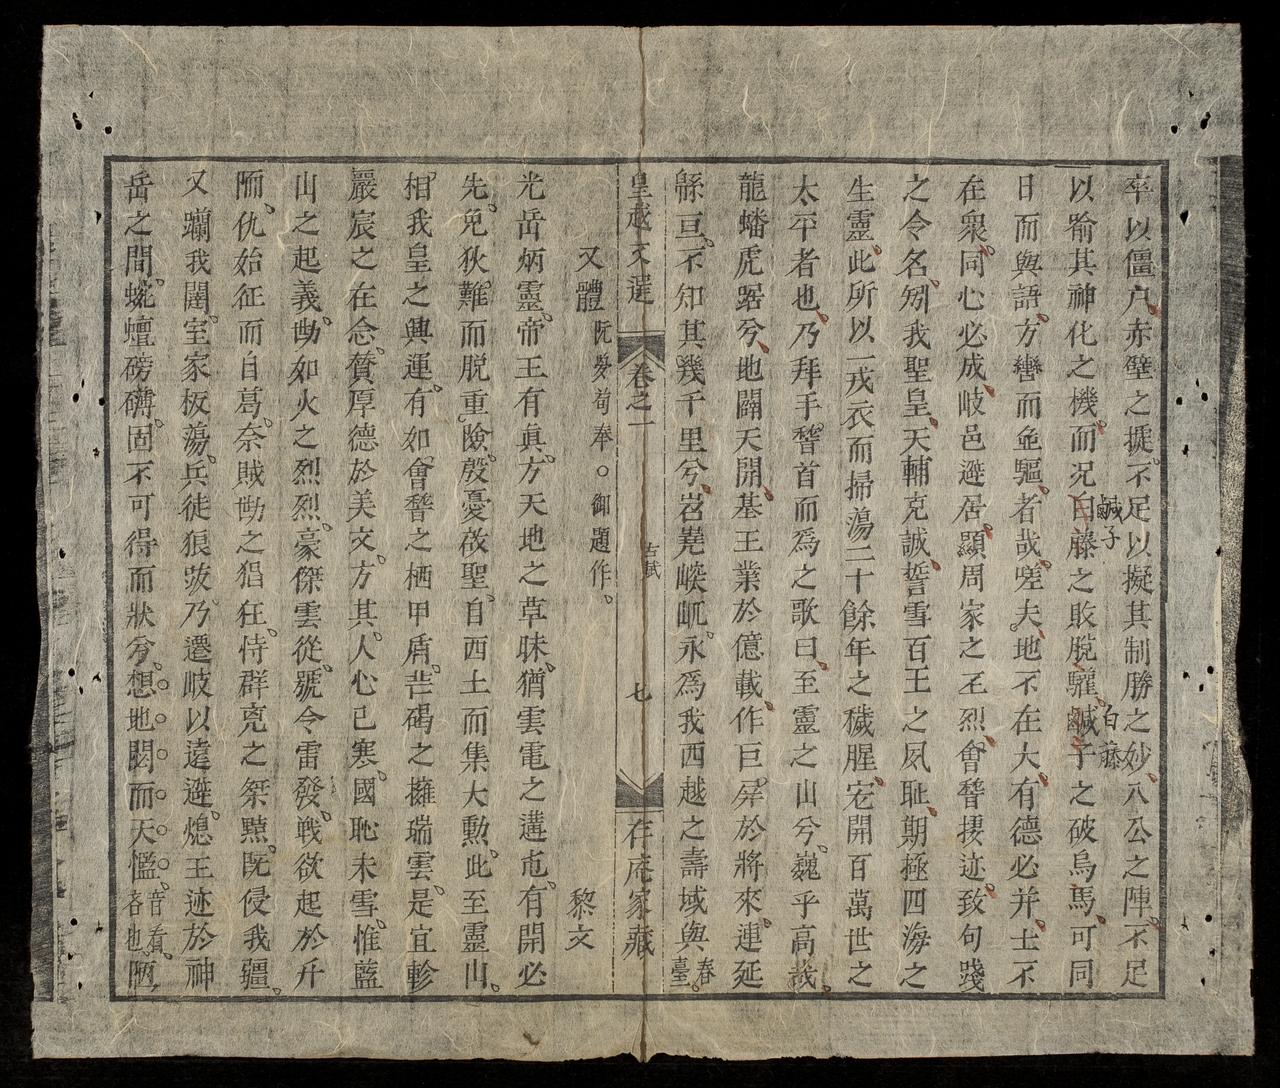 卒以僵户赤壁之捷不足以擬其制勝之妙八公之陣不足
以喻其神化之機而况白藤之敗脫驩鹹子之破烏馬可同
鹹子
白藤
日而與語方轡而並驅者哉嗟夫地不在大有德必并士不
在衆同心必成岐邑遷居顯周家之丕烈會稽摟迹致句踐
之令名矧我聖皇天輔克誠誓雪百王之夙耻期極四海之
生靈此所以一戎衣而掃蕩二十餘年之穢腥宏開百萬世之
太平者也乃拜手稽首而爲之歌曰至靈之山兮巍乎高哉
龍蟠虎踞兮地闢天開基王業於億載作巨屏於將來連延
緜亘不知其幾千里兮岧嶤嶸屼永爲我西越之壽域與春臺
皇越文選 卷之一 古賦 七 存庵家藏
又體 阮夢荀奉○御題作 黎文
光岳炳靈帝王有眞方天地之草昧猶雲電之遘屯有開必
先免狄難而脫重險殷憂啟聖自西土而集大勳此至靈山
相我皇之興運有如會稽之栖甲盾芒碭之擁瑞雲是宜軫
嚴宸之在念贊厚德於美文方其人心已寒國恥未雪惟藍
山之起義勛如火之烈烈豪傑雲從號令雷發戰欲起於斤
陑仇始征而自葛奈賊勛之猖狂恃群克之桀黠既侵我疆
又躪我闉室家板蕩兵徒狼茇乃遷岐以遠遯熄王迹於神
岳之間蜿蟺磅礴固不可得而狀兮想地閟而天慳音看吝也陋